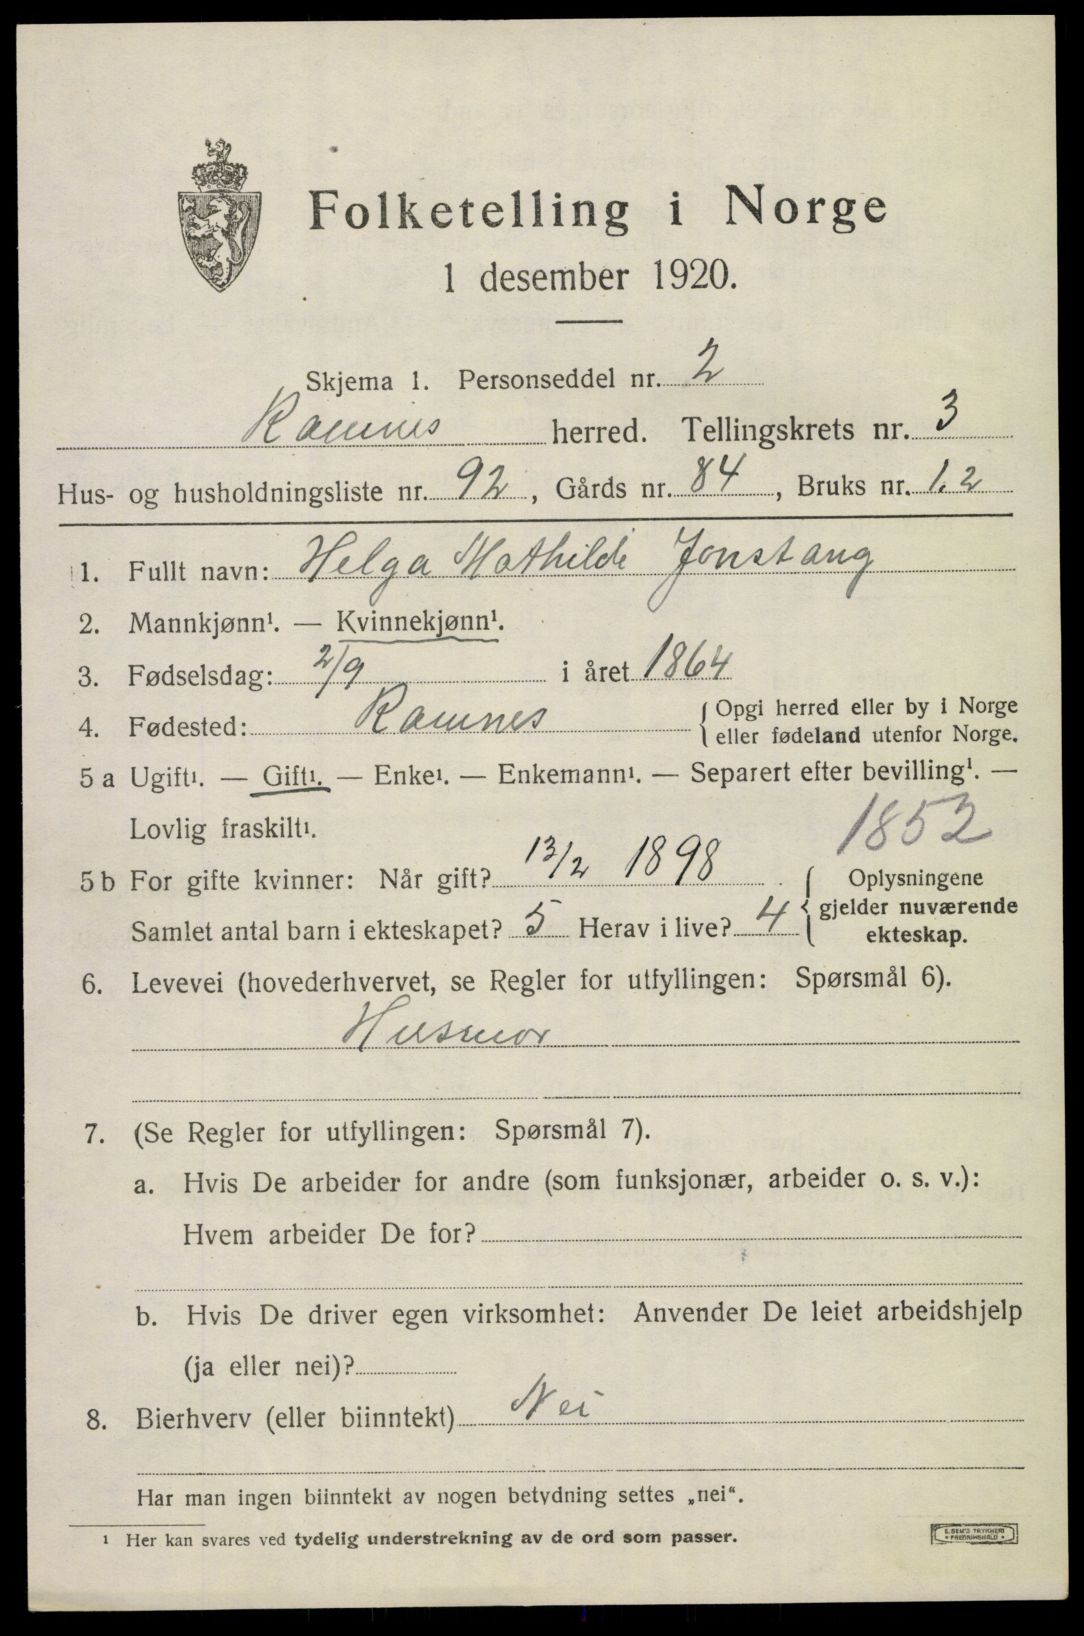 Folketelling i Norge
1 desember 1920.
Skjema 1. Personseddel nr. 2
Ramnes herred. Tellingskrets nr. 3
Hus- og husholdningsliste nr. 92, Gårds nr. 84, Bruks nr. 1.2
1. Fullt navn: Helga Mathilde Jonstang
2. Mannkjønn¹. — Kvinnekjønn¹.
3. Fødselsdag: 2/9 i året 1864
4. Fødested: Ramnes { Opgi herred eller by i Norge
eller fødeland utenfor Norge.
5 a Ugift¹. — Gift¹. — Enke¹. — Enkemann¹. — Separert efter bevilling¹. —
Lovlig fraskilt¹.
1852
5 b For gifte kvinner: Når gift? 13/2 1898
Samlet antal barn i ekteskapet? 5 Herav i live? 4
{ Oplysningene
gjelder nuværende
ekteskap.
6. Levevei (hovederhvervet, se Regler for utfyllingen: Spørsmål 6).
Husmor
7. (Se Regler for utfyllingen: Spørsmål 7).
a. Hvis De arbeider for andre (som funksjonær, arbeider o. s. v.):
Hvem arbeider De for?
b. Hvis De driver egen virksomhet: Anvender De leiet arbeidshjelp
(ja eller nei)?
8. Bierhverv (eller biinntekt) Nei
Har man ingen biinntekt av nogen betydning settes „nei“.
¹ Her kan svares ved tydelig understrekning av de ord som passer.
E. SEM'S TRYKKERI
FREDRIKSHALD